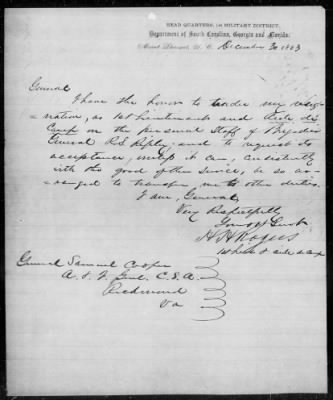 HEAD QUARTERS, 1st MILITARY DISTRICT,
Department of South Carolina, Georgia and Florida.
Mount Pleasant, S. C. December 30 1863
General
I have the honor to tender my resig-
nation, as 1st Lieutenant and Aide de
Camp on the personal Staff of Brigadier
General R.S. Ripley; and to request its
acceptance, unless it can, consistently
with the good of the service, be so ar-
ranged to transfer me to other duties.
I am, General,
Very Respectfully
Your obt Servt
H H Rogers
1st Lieut & aide d camp
General Samuel Cooper
A. & I. Genl. C.S.A.
Richmond
Va